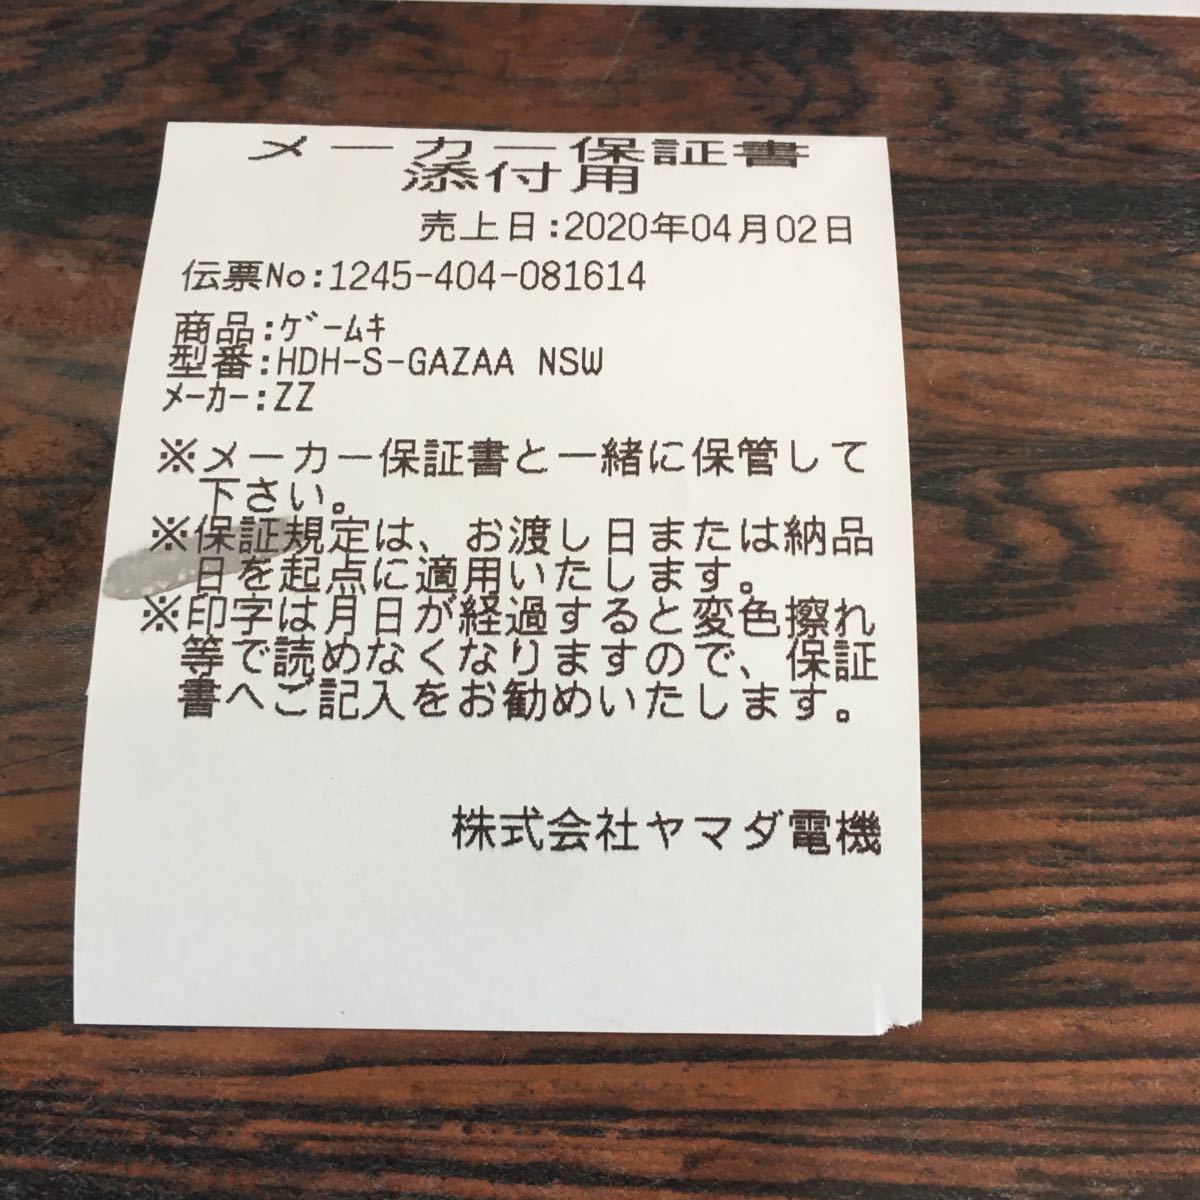 メーカー保証書
添付用
売上日:2020年04月02日
伝票No:1245-404-081614
商品:ｹﾞｰﾑｷ
型番:HDH-S-GAZAA NSW
ﾒｰｶｰ:ZZ
※メーカー保証書と一緒に保管して
下さい。
※保証規定は、お渡し日または納品
日を起点に適用いたします。
※印字は月日が経過すると変色擦れ
等で読めなくなりますので、保証
書へご記入をお勧めいたします。
株式会社ヤマダ電機